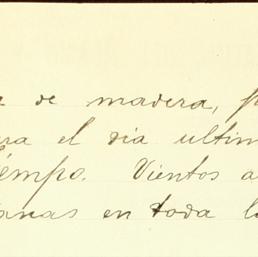 de madera, p
ra el dia ultim
iempo. Vientos a
anas en toda la